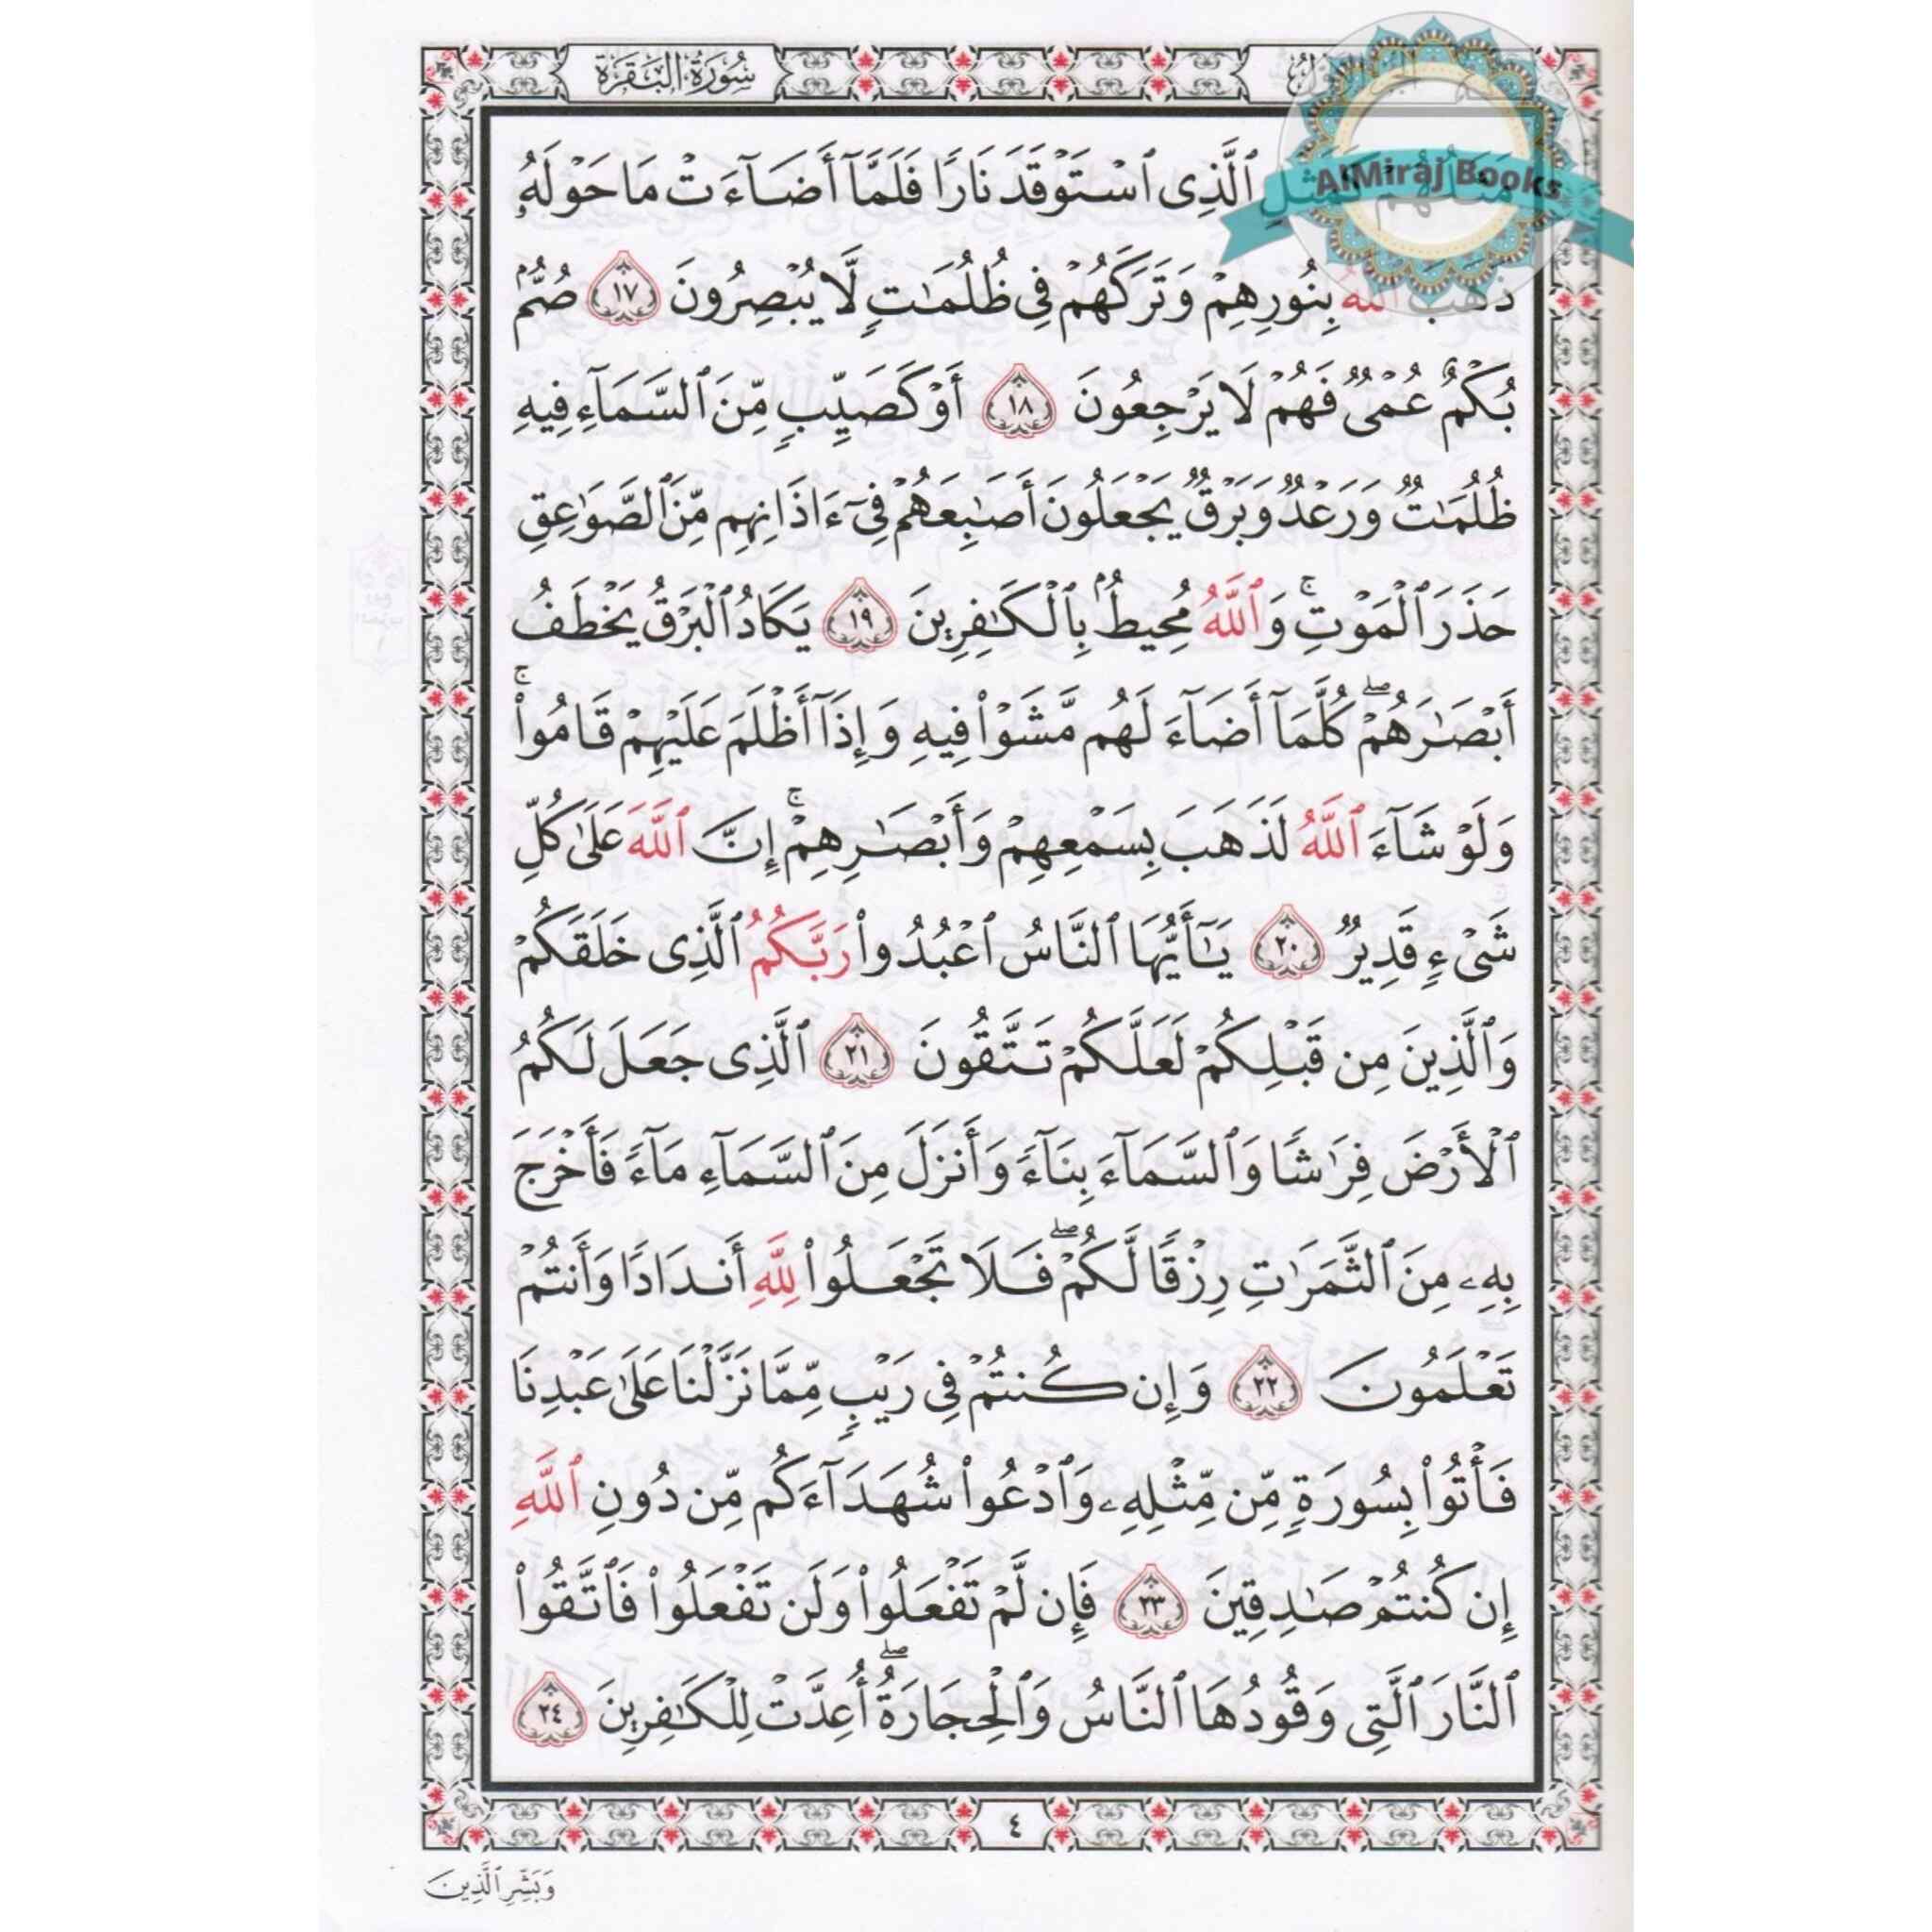 سُورَةُ البَقَرَة
AlMiraj Books
ٱلَّذِى ٱسْتَوْقَدَ نَارًا فَلَمَّآ أَضَآءَتْ مَا حَوْلَهُۥ
ذَهَبَ ٱللَّهُ بِنُورِهِمْ وَتَرَكَهُمْ فِى ظُلُمَٰتٍ لَّا يُبْصِرُونَ ١٧ صُمٌّۢ
بُكْمٌ عُمْىٌ فَهُمْ لَا يَرْجِعُونَ ١٨ أَوْ كَصَيِّبٍ مِّنَ ٱلسَّمَآءِ فِيهِ
ظُلُمَٰتٌ وَرَعْدٌ وَبَرْقٌ يَجْعَلُونَ أَصَٰبِعَهُمْ فِىٓ ءَاذَانِهِم مِّنَ ٱلصَّوَٰعِقِ
حَذَرَ ٱلْمَوْتِ ۚ وَٱللَّهُ مُحِيطٌۢ بِٱلْكَٰفِرِينَ ١٩ يَكَادُ ٱلْبَرْقُ يَخْطَفُ
أَبْصَٰرَهُمْ ۖ كُلَّمَآ أَضَآءَ لَهُم مَّشَوْا۟ فِيهِ وَإِذَآ أَظْلَمَ عَلَيْهِمْ قَامُوا۟ ۚ
وَلَوْ شَآءَ ٱللَّهُ لَذَهَبَ بِسَمْعِهِمْ وَأَبْصَٰرِهِمْ ۚ إِنَّ ٱللَّهَ عَلَىٰ كُلِّ
شَىْءٍ قَدِيرٌ ٢٠ يَٰٓأَيُّهَا ٱلنَّاسُ ٱعْبُدُوا۟ رَبَّكُمُ ٱلَّذِى خَلَقَكُمْ
وَٱلَّذِينَ مِن قَبْلِكُمْ لَعَلَّكُمْ تَتَّقُونَ ٢١ ٱلَّذِى جَعَلَ لَكُمُ
ٱلْأَرْضَ فِرَٰشًا وَٱلسَّمَآءَ بِنَآءً وَأَنزَلَ مِنَ ٱلسَّمَآءِ مَآءً فَأَخْرَجَ
بِهِۦ مِنَ ٱلثَّمَرَٰتِ رِزْقًا لَّكُمْ ۖ فَلَا تَجْعَلُوا۟ لِلَّهِ أَندَادًا وَأَنتُمْ
تَعْلَمُونَ ٢٢ وَإِن كُنتُمْ فِى رَيْبٍ مِّمَّا نَزَّلْنَا عَلَىٰ عَبْدِنَا
فَأْتُوا۟ بِسُورَةٍ مِّن مِّثْلِهِۦ وَٱدْعُوا۟ شُهَدَآءَكُم مِّن دُونِ ٱللَّهِ
إِن كُنتُمْ صَٰدِقِينَ ٢٣ فَإِن لَّمْ تَفْعَلُوا۟ وَلَن تَفْعَلُوا۟ فَٱتَّقُوا۟
ٱلنَّارَ ٱلَّتِى وَقُودُهَا ٱلنَّاسُ وَٱلْحِجَارَةُ ۖ أُعِدَّتْ لِلْكَٰفِرِينَ ٢٤
٤
وَبَشِّرِ ٱلَّذِينَ